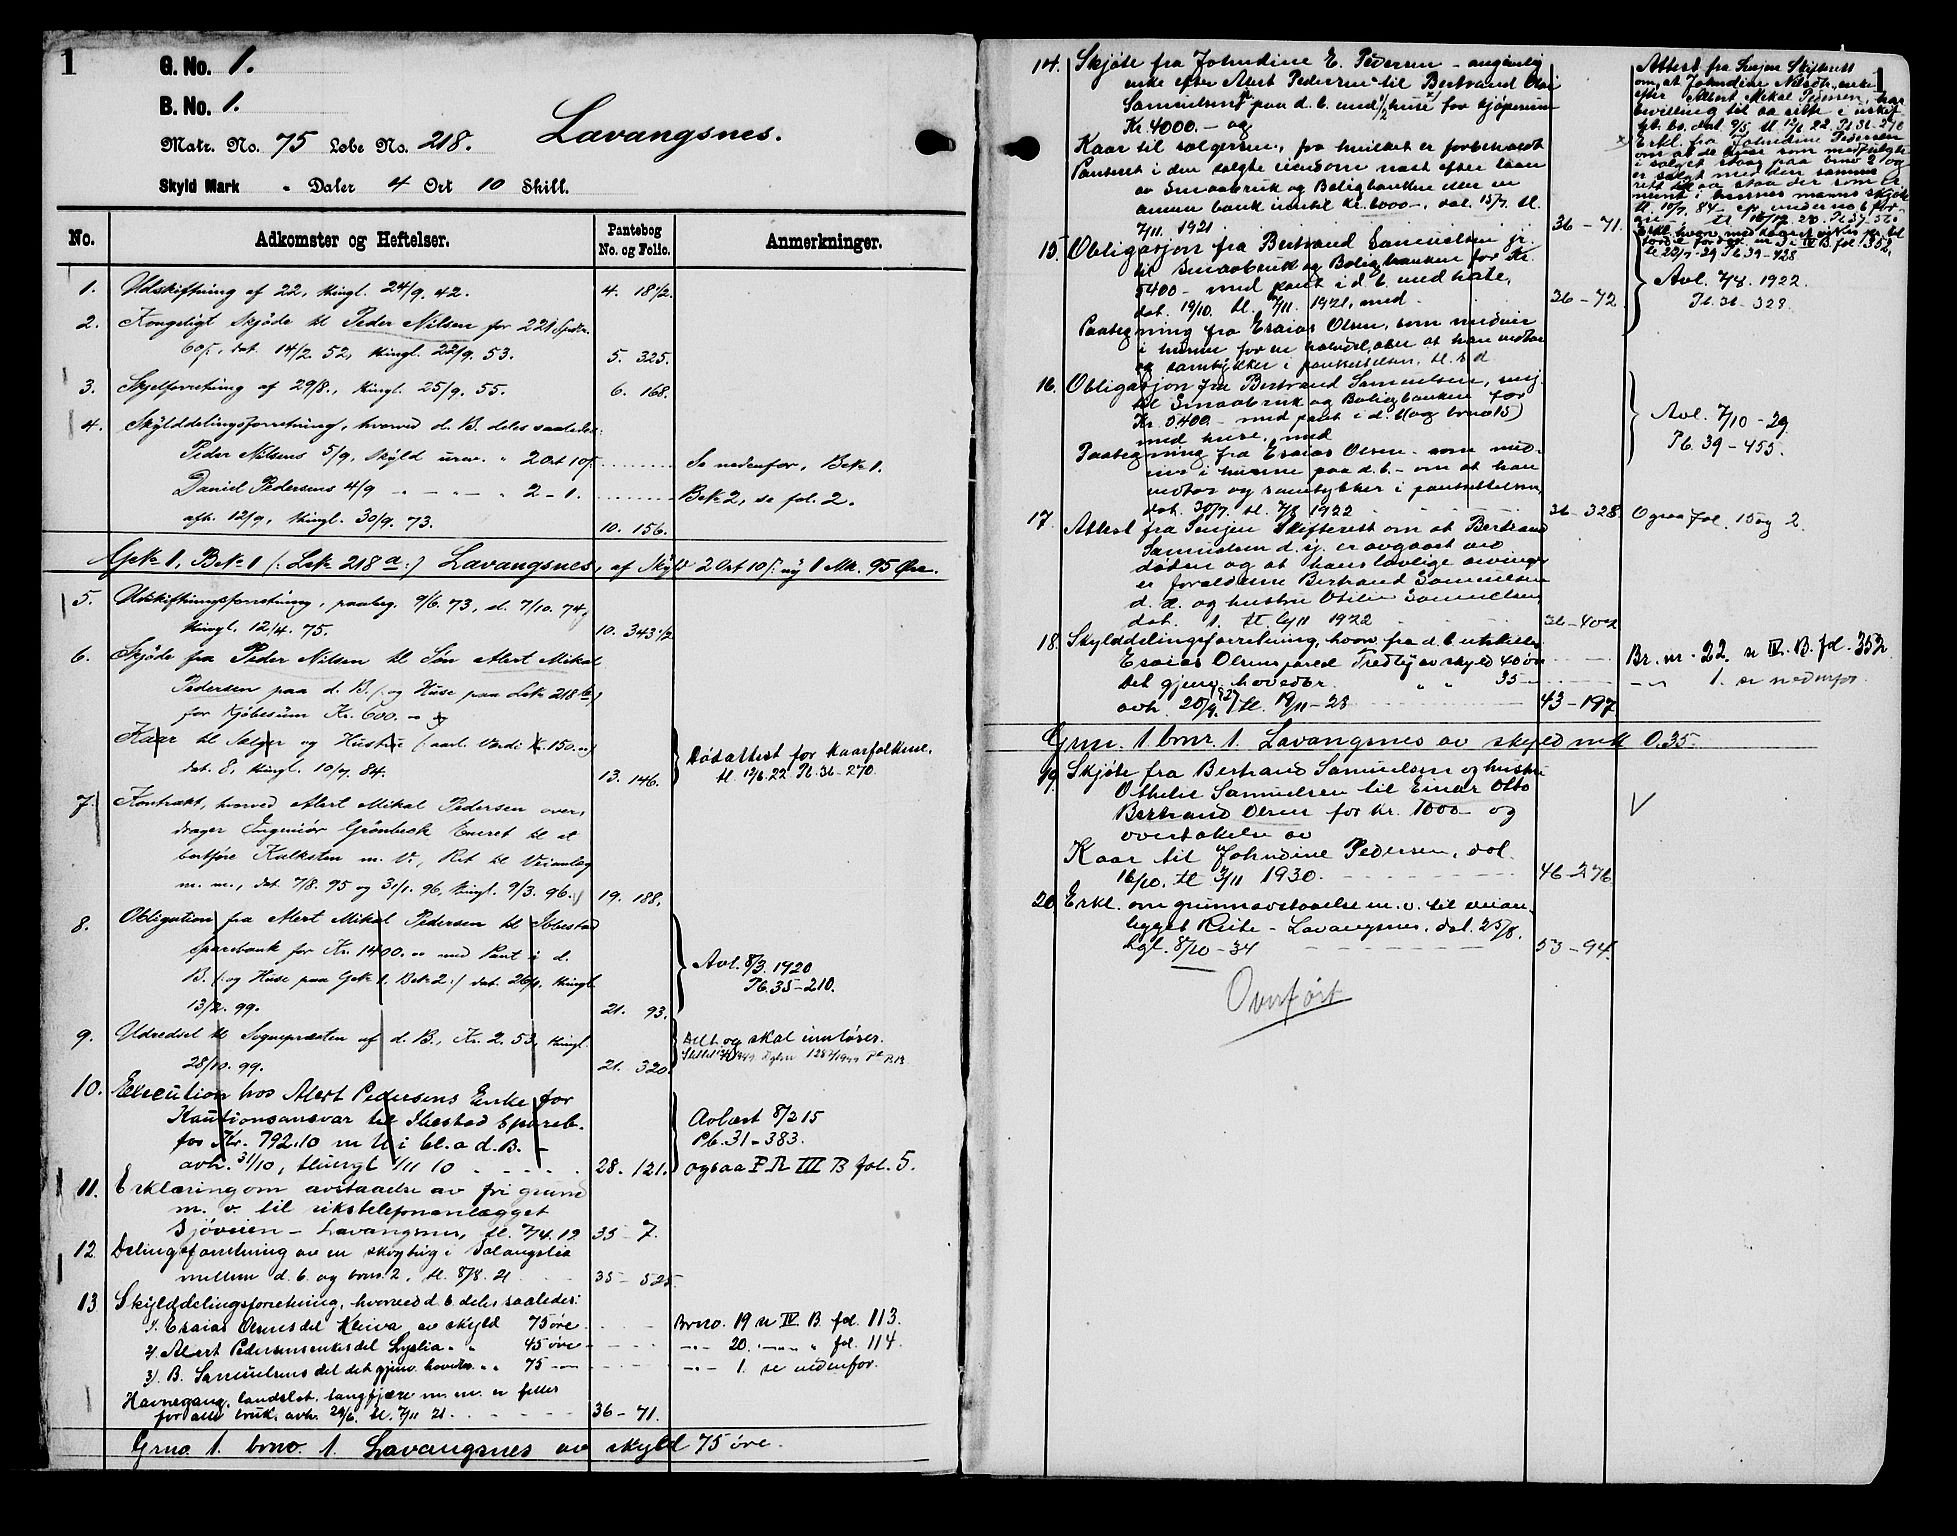 1
G. No. 1.
B. No. 1.
Matr. No. 75 Løbe No. 218. Lavangsnes.
Skyld Mark " Daler 4 Ort 10 Skill.
No. Adkomster og Heftelser. Pantebog No. og Folio. Anmerkninger.
1. Udskiftning af 22, thingl. 24/9. 42. 4. 181/2.
2. Kongeligt Skjöde til Peder Nilsen for 221 Spdlr.
60 s, dat. 14/2. 52, thingl. 22/9. 53. 5. 325.
3. Skjelforretning af 29/8., thingl. 25/9. 55. 6. 168.
4. Skylddelingsforretning, hvorved d. B. deles saaledes:
Peder Nilsens 5/9, Skyld urev. " 2 Ort 10 s. Se nedenfor, Bek 1.
Daniel Pedersens 4/9 — " — " — " 2 - 1. Bek 2, se fol. 2.
afh. 12/9, thingl. 30/9. 73. 10. 156.
Gek 1, Bek 1 (: Lek 218 a :) Lavangsnes, af Skyld 2 Ort 10 s: ny 1 Mk. 95 Øre.
5. Udskiftningsforretning, paabeg. 9/6. 73, sl. 7/10. 74,
thingl. 12/4. 75. 10. 343 1/2.
6. Skjöde fra Peder Nilsen til Søn Alert Mikal
Pedersen paa d. B. (: og Huse paa Lek 218 b:)
for Kjöbesum Kr. 600. — og
Kaar til Sælger og Hustru (: aarl. Værdi Kr. 150. :)
dat. 8, thingl. 10/7. 84. 13. 146. Dødsattest for kaarfolkene,
tl. 12/6. 22 Pb. 36 - 270.
7. Kontrakt, hvorved Alert Mikal Pedersen over,
drager Ingeniör Grönbeck Eneret til at
bortföre Kalksten m. V., Ret til Veianlæg
m. m., dat. 7/8. 95 og 31/1. 96, thingl. 9/3. 96. 19. 188.
8. Obligation fra Alert Mikal Pedersen til Ibbestad
Sparebank for Kr. 1400. " med Pant i d.
B. (: og Huse paa Gek 1, Bek 2 :) dat. 26/1, thingl.
13/2. 99. 21. 93. Avl. 8/3. 1920
Pb. 35 - 210.
9. Udredsel til Sognepræsten af d. B., Kr. 2. 53, thingl.
28/10. 99. 21. 320. og skal innløses.
10. Execution hos Alert Pedersens Enke for
Kautionsansvar til Ibestad Spareb.
for Kr. 792.10 m U i bl. a d. B. —
avh. 31/10, thingl 1/11 10 28. 121. Avlæst 8/2 15
Pb. 31 - 383.
ogsaa P R III B fol. 5.
11. Erklæring om avstaaelse av fri grund
m. v. til rikstelefonanlægget
Sjöveien — Lavangsnes, tl. 7/4. 19 35 - 7.
12. Delingsforretning av en skogteig i Salangslia
mellem d. b. og brno. 2, tl. 8/8. 21 35 - 525.
13 Skylddelingsforretning, hvorved d. b. deles saaledes:
1/. Esaias Olsens del Kleiva av skyld 75 öre Brno. 19 se IV B. fol. 113.
2/. Alert Pedersens enkes del Lyslia " " 45 öre — " - 20. — " — " fol. 114.
3/. B. Samuelsens del det gjenv. hovedbr. " " 75 — " — " - 1. se nedenfor.
Havnegang, landslot, tangfjære m. m. er felles
for alle bruk, avh. 24/6. tl. 7/11 21. 36 - 71.
Grno. 1. brno. 1. Lavangsnes av skyld 75 öre.
1
14. Skjöte fra Johndine E. Pedersen — angivelig
enke efter Alert Pedersen til Bertrand Olai
Samuelsen paa d. b. med 1/2 huse for kjöpesum
Kr. 4000. — og
Kaar til sælgersken, fra hvilket er forbeholdt
Panteret i den solgte eiendom næst efter laan
av Smaabruk og Boligbanken eller en
annen bank inntil kr. 6000 —, dat. 15/7. tl.
7/11. 1921 36 - 71.
Attest fra Senjen Skifterett
om, at Johndine Nilsdtr. enke
efter Albert Mikal Pedersen, har
bevilling til aa sitte i uskif
tet bo, dat. 9/5. tl. 12/6 22. Pb. 36 - 270
Erkl. fra Johndine Pedersen
om at de huse som medfulgte
i salget staar paa brno 2 og
er solgt med den samme
15. Obligasjon fra Bertrand Samuelsen jr.
til Smaabruk og Boligbanken for Kr.
5400 — med pant i d. b. med hete,
dat. 19/10. tl. 7/11. 1921, med 36 - 72
Avl. 7/8. 1922.
Pb. 36 - 328.
Paategning fra Esaias Olsen, som medeier
i husene for en halvdel, om at han vedtar
og samtykker i panteettelsen. tl. s d
16. Obligasjon fra Bertrand Samuelsen, ung.
til Smaabruk og Boligbanken for
Kr. 5400. — med pant i d. b. (og brno 15)
med huse, med
Avl. 7/10 - 29
Pb. 39 - 455.
Paategning fra Esaias Olsen — som med-
eier i husene paa d. b. — om at han
vedtar og samtykker i pantsettelsen,
dat. 30/7. tl. 7/8 1922 36 - 328 Ogsaa fol. 15 og 2.
17. Attest fra Senjen Skifterett om at Bertrand
Samuelsen d. y. er avgaaet ved
döden og at hans lovlige arvinger
er foreldrene Bertrand Samuelsen
d. æ. og hustru Otilie Samuelsen,
dat. 1. tl. 6/11 1922 36 - 402
18. Skylddelingsforretning, hvorv. fra d. b. utskilles
Esaias Olsens parsel Fredly av skyld 40 öre Br. nr. 22. se IV. B. fol. 352
Det gjenv. hovedbr. " " 35 — — " - 1. se nedenfor.
avh. 20/9. 27 tl. 19/11 - 28 43 - 197
Grnr. 1 brnr. 1. Lavangsnes av skyld mk 0.35.
19. Skjöte fra Bertrand Samuelsen og hustru
Othelie Samuelsen til Einar Otto
Bertrand Olsen for kr. 1000 — og
overtakelse av
Kaar til Johndine Pedersen, dat.
16/10. tl. 3/11 1930. 46 - 276
20. Erkl. om grunnavstaaelse m. v. til veian-
legget — Lavangsnes, dat. 25/8.
tgl. 8/10 - 34 53 - 94.
Overført